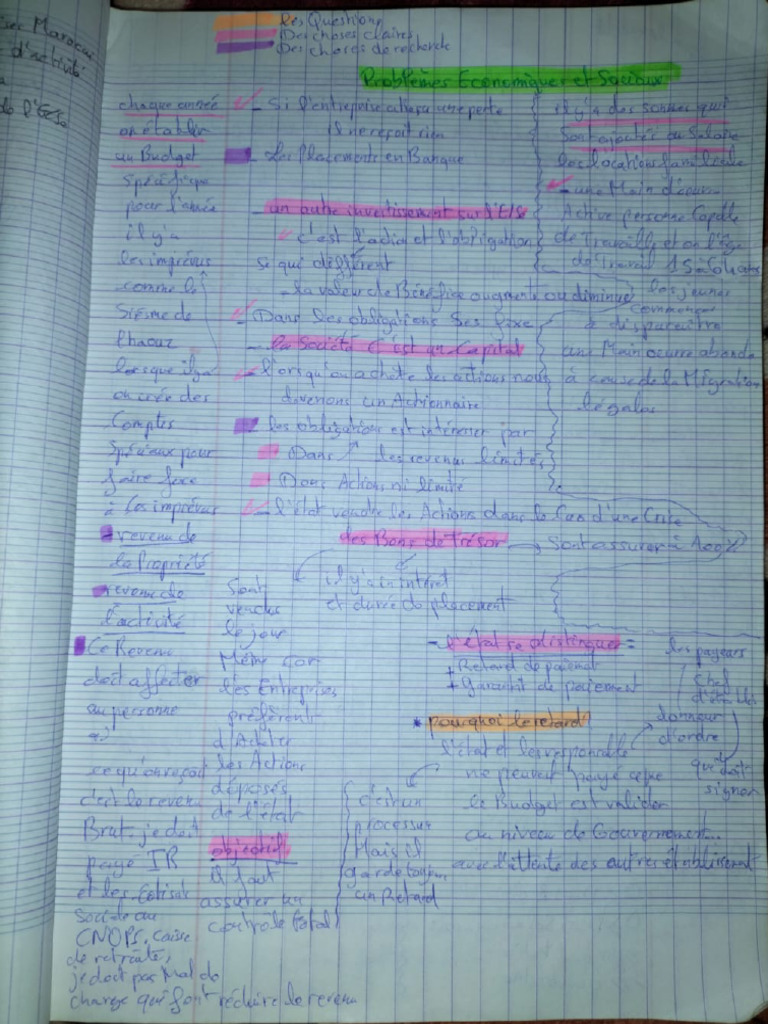 Les Questions
Des choses claires
Des choses de recherche
ser Marocai
d'activité
de l'
Problèmes Economiques et Sociaux
chaque année
on établer
un Budget
Spésifique
pour l'année
il y'a
les imprévus
comme le
Siésme de
lhaouz
lorsque il ya
on crée des
Comptes
Spésiaux pour
faire face
à les imprévus
revenu de
la Propriété
revenu de
l'activité
Ce Revenu
doit affecter
au personne
ce qu'on reçoit
c'est le revenu
Brut. je doit
payé IR
et les Cotisat
Sociale au
CNOPS, Caisse
de retraite,
je doit pas Mal de
charge qui font réduire le revenu
- Si l'entreprise a une perte
il ne reçoit rien
Les Placements en Banque
- un autre investissement sur l'
c'est l'actio et l'obligation
Se qui différent
- la valeur de Bénéfice augmente ou diminue
- Dans les obligations Ses fixe
- la Société c'est un Capital
- l'orsqu'on achète les actions nous
devenons un Actionnaire
les obligations est intérésser par
Dans les revenus limités
Dans Actions ni limité
- l'état vendre les Actions dans le Cas d'une Crise
des Bons de Trésor → Sont assurer à
il y'a in intéret
et durée de placement
Sont
vendus
le jour
Même Car
les Entreprises
préfèrent
d'Acheter
les Actions
déposés
de l'état
objectif
il faut
assurer un
contrôle total
il y'a des sommes qui
Sont ajouter au Salaire
les locations familiale
- une Main d'œuvre
Active personne Capable
de Travaille et on l'âge
de Travail 15
les jeunes
commencer
à disparaitre
une Main œuvre abonda
à cause de la Migration
légales
- l'état se distinguer =
+ Retard de paiement
+ garantit de paiement
* pourquoi le retard
l'état et les responsable
ne peuvent payé ce que
le Budget est valider
au niveau de Gouvernement...
avec l'attente des autres établissement
c'est un
processus
Mais il
garde toujours
un Retard
les payeurs
Chef
d'établi
donneur
d'ordre
qui doit
signer